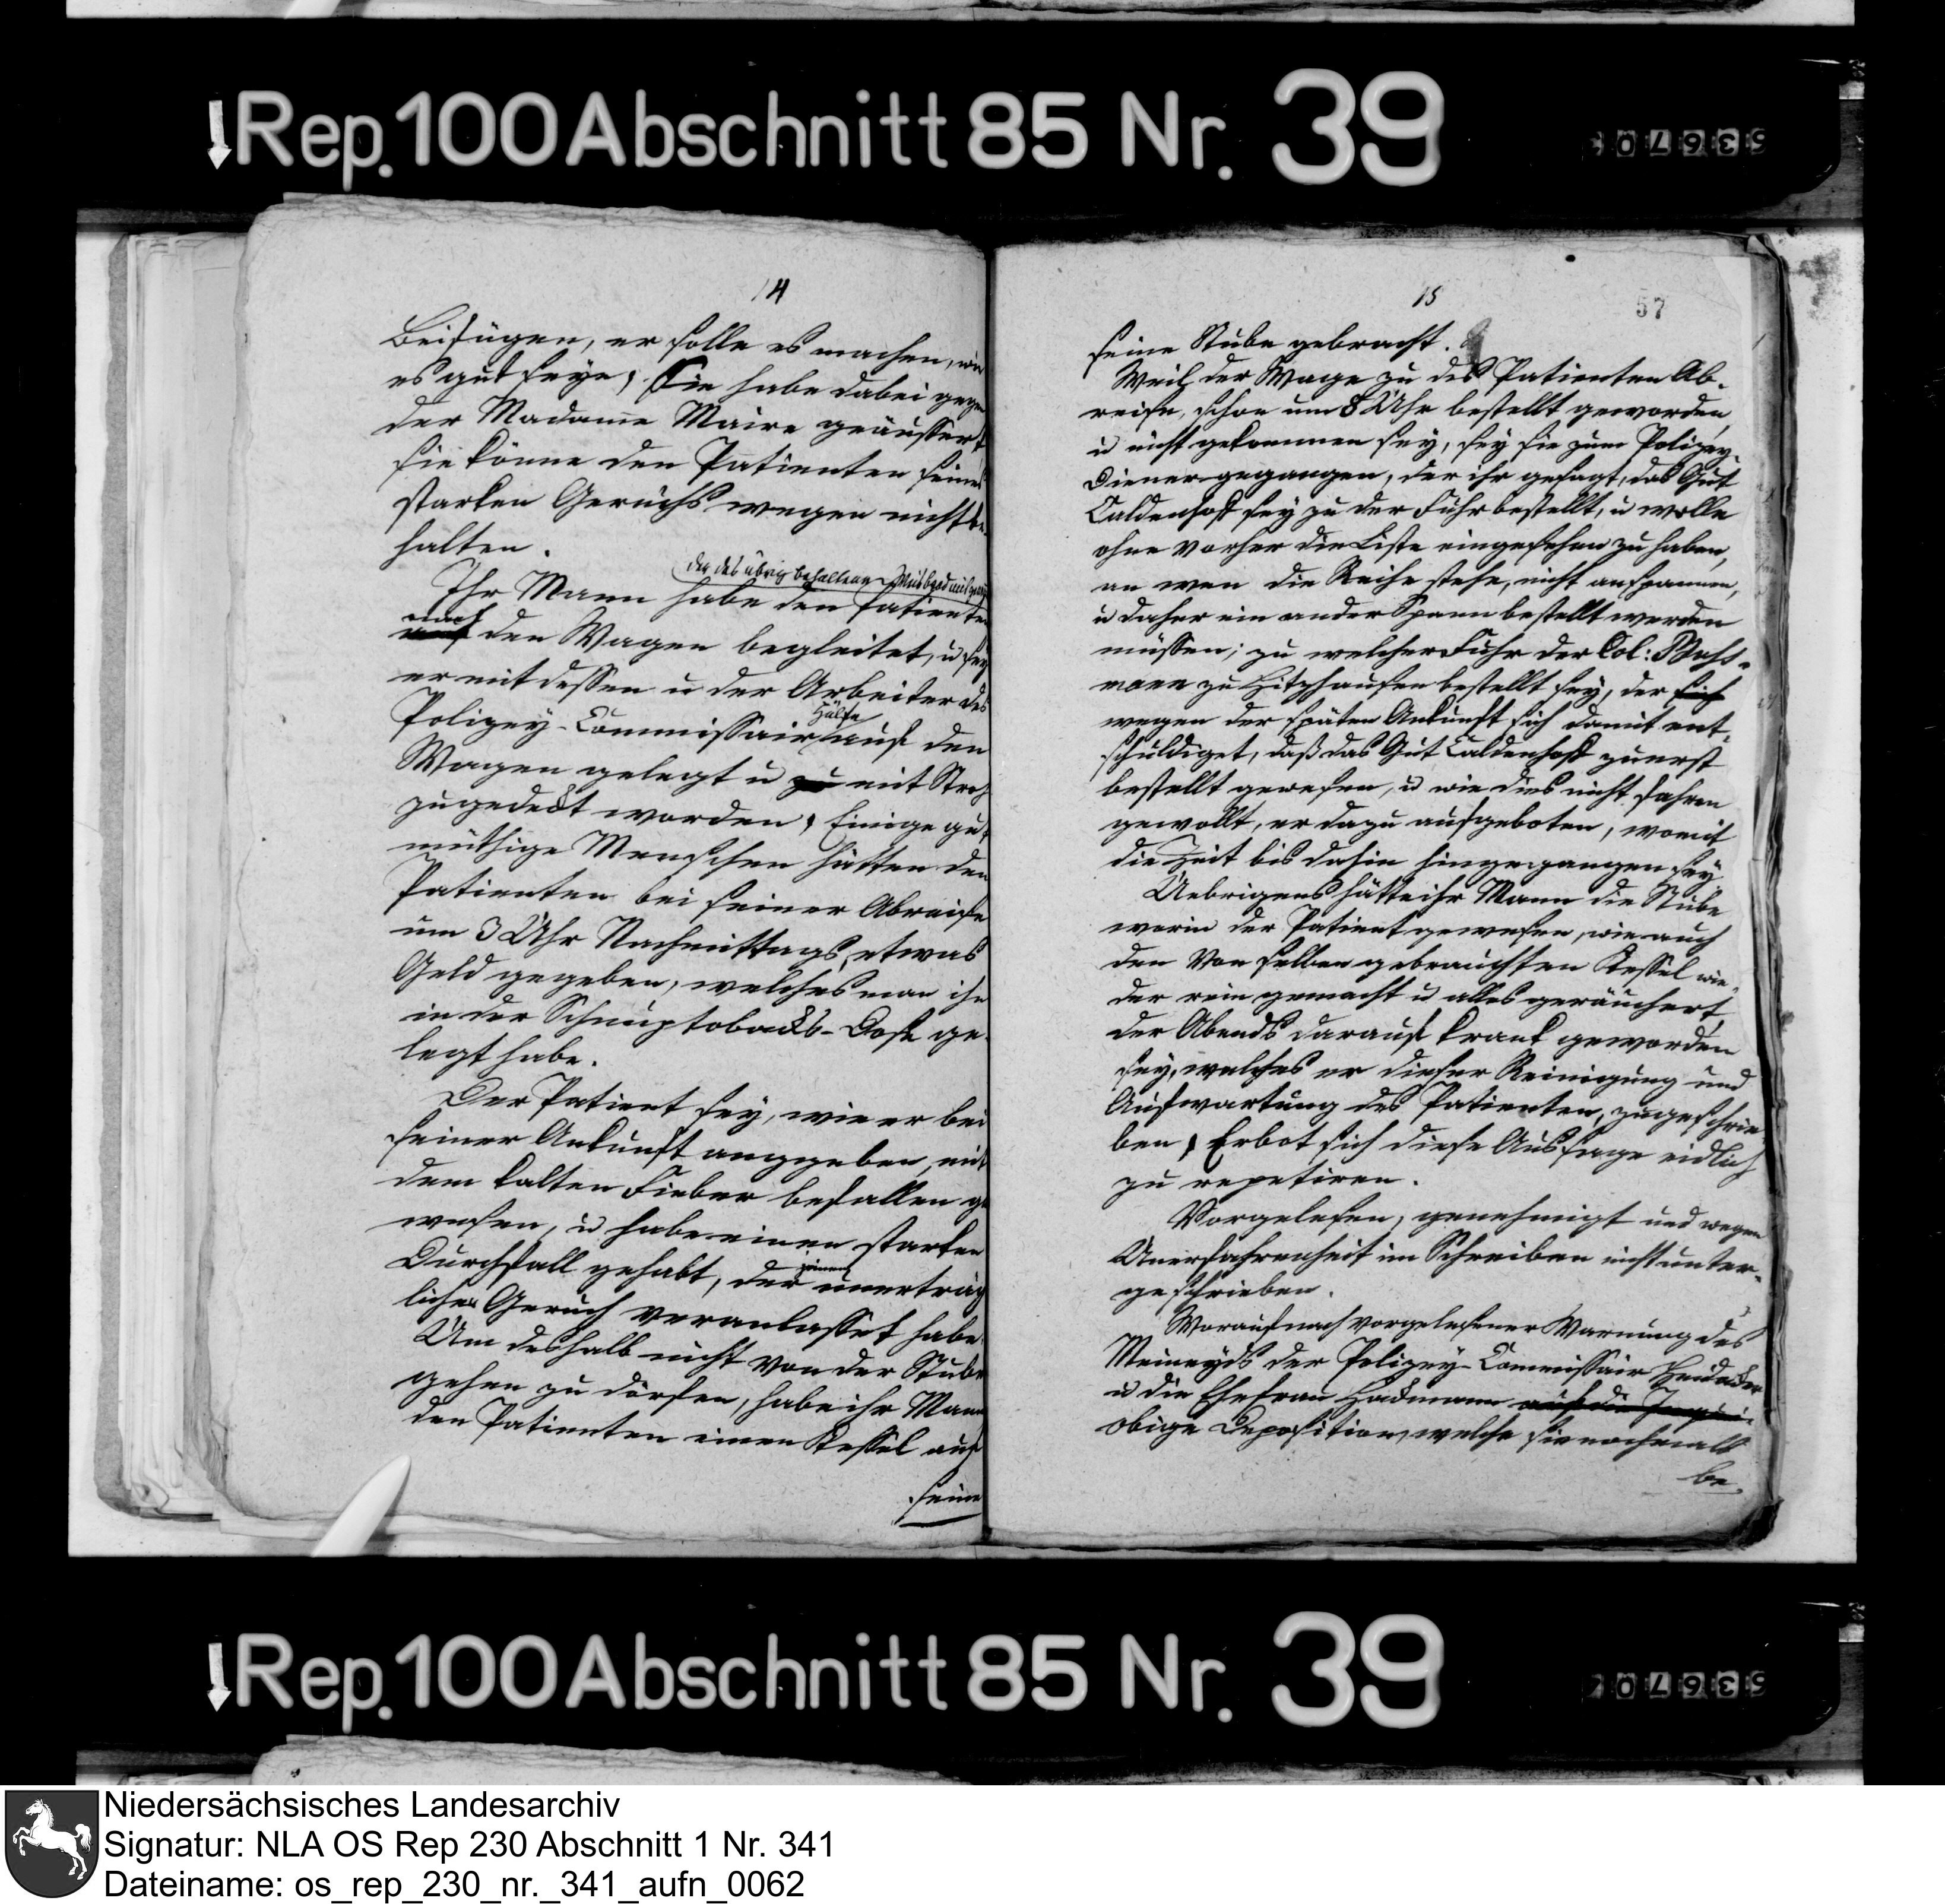 Rep. 100 Abschnitt 85 Nr. 39
53670
14
Beifügen, er solle es machen, wie
es gut seye, Sie habe dabei gegen
der Madame Maire geäussert
sie könne den Patienten seines
starken Geruchs wegen nicht be-
halten.
der das übrig behaltene Weisbrod mitgen
Ihr Mann habe den Patienten
nach
auf den Wagen begleitet, u sey
er mit dessen u der Arbeiter des
Hülfe
Polizey-Commissair auf den
Wagen gelegt u zu mit Stroh
zugedekt worden, Einige gut
müthige Menschen hätten den
Patienten bei seiner Abreise
um 3 Uhr Nachmittags, etwas
Geld gegeben, welches man ihn
in der Schnuptobacks-Dose ge-
legt habe.
Der Patient sey, wie er bei
seiner Ankunft angegeben, mit
dem kalten Fieber befallen ge
wesen, u habe einen starken
einen
Durchfall gehabt, der unerträg
lichen Geruch veranlasset habe
Um deshalb nicht von der Stube
gehen zu dörfen, habe ihr Mann
den Patienten einen Kessel auf
seine
15
57
seine Stube gebracht.
Weil der Wage zu des Patienten Ab-
reise, schon um 8 Uhr bestellt geworden,
u nicht gekommen sey, sey sie zum Polizey-
Diener gegangen, der ihr gesagt, das Gut
Caldenhoff sey zu der Fuhr bestellt, u wolle
ohne vorher die Liste eingesehen zu haben,
an wen die Reihe stehe, nicht anspannen,
u daher ein ander Spann bestellt werden
müssen; zu welcher Fuhr der Col:
mann zu Hitzhausen bestellt sey, der sich
wegen der späten Ankunft sich damit ent-
schuldiget, daß das Gut Caldenhoff zuerst
bestellt gewesen, u wie dies nicht fahren
gewollt, er dazu aufgeboten, womit
die Zeit bis dahin hingegangen sey
Uebrigens hätte ihr Mann die Stube
worin der Patient gewesen, wie auch
den von selben gebrauchten Kessel wie-
der rein gemacht u alles geräuchert,
der Abends darauf krank geworden
sey, welches er dieser Reinigung und
Aufwartung des Patienten, zugeschrie-
ben, Erbot sich diese Aussage eidlich
zu repetiren.
Vorgelesen, genehmigt und wegen
Unerfahrenheit im Schreiben nicht unter-
geschrieben.
Worauf nach vorgelesener Warnung des
Meineyds der Polizey-Commissair
u die Ehefrau Hackmann auf die
obige Deposition, welche sie nochmals
be-
Rep. 100 Abschnitt 85 Nr. 39
53670
Niedersächsisches Landesarchiv
Signatur: NLA OS Rep 230 Abschnitt 1 Nr. 341
Dateiname: os_rep_230_nr._341_aufn_0062